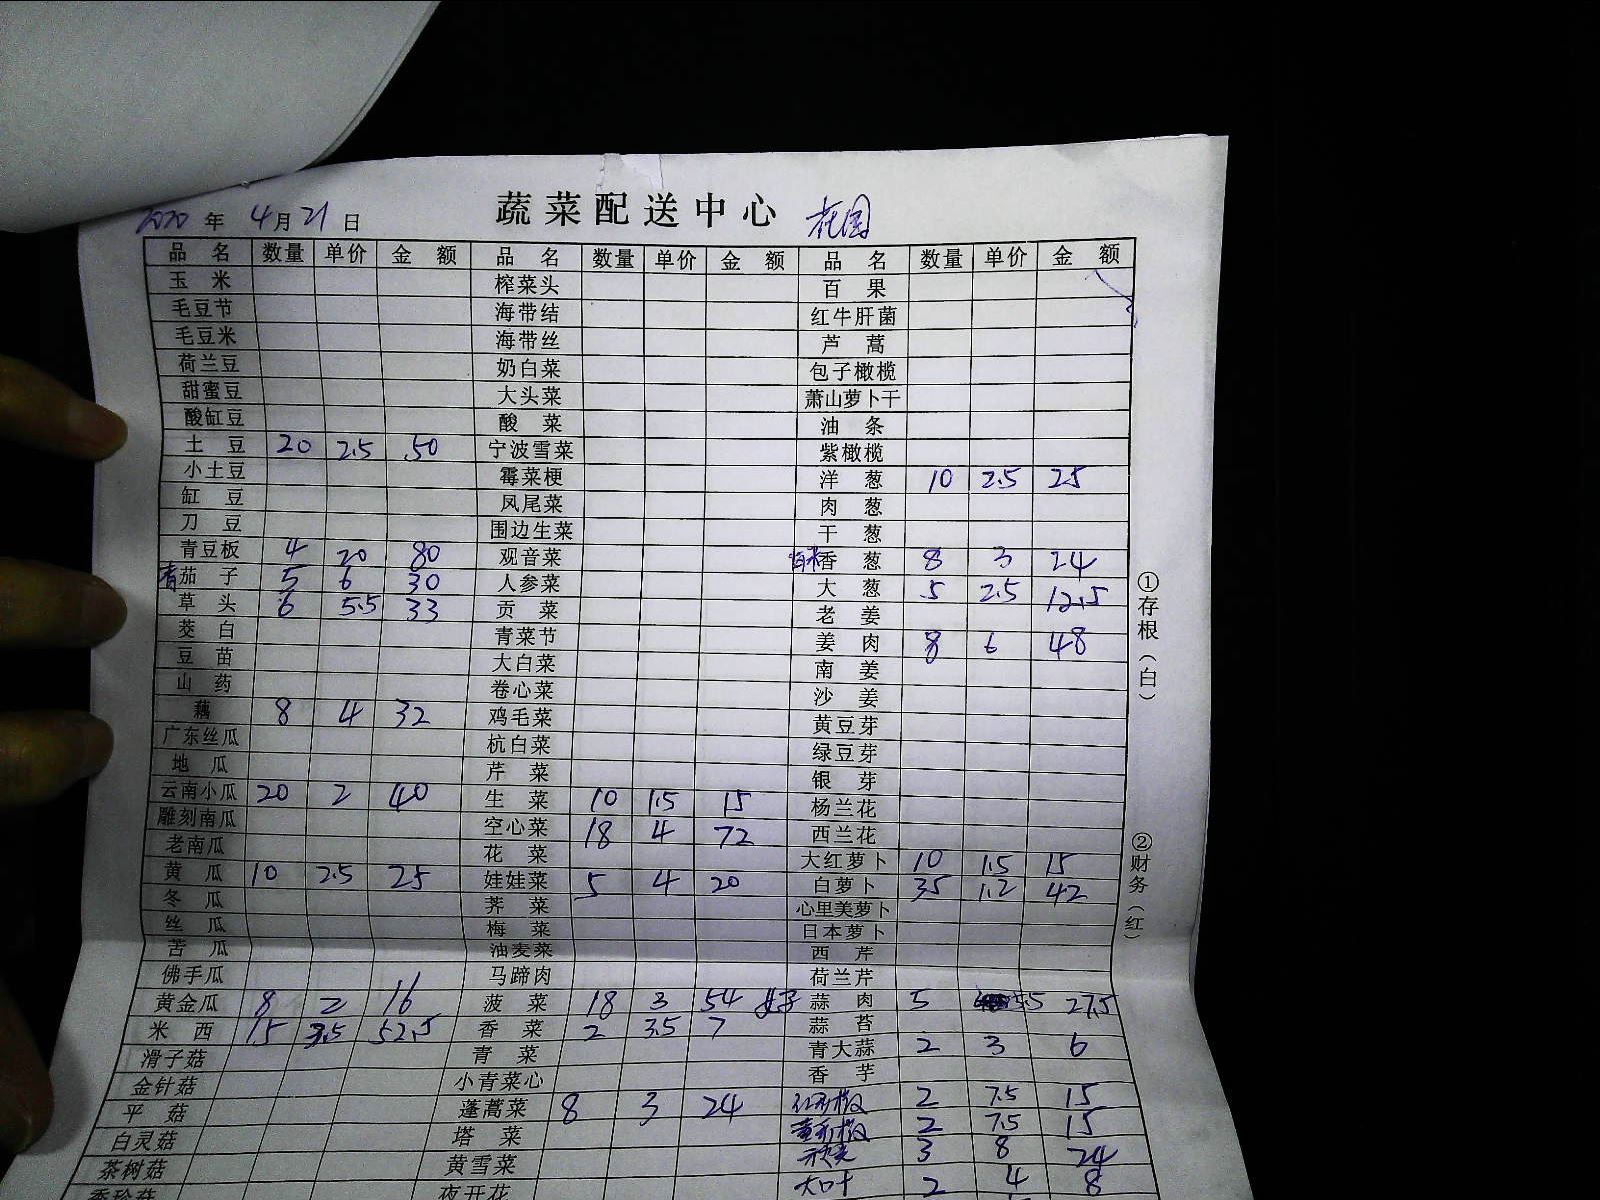 2020 年 4 月 21 日 蔬菜配送中心 花园
品名 数量 单价 金额 品名 数量 单价 金额 品名 数量 单价 金额
玉米 榨菜头 百果
毛豆节 海带结 红牛肝菌
毛豆米 海带丝 芦蒿
荷兰豆 奶白菜 包子橄榄
甜蜜豆 大头菜 萧山萝卜干
酸缸豆 酸菜 油条
土豆 20 2.5 50 宁波雪菜 紫橄榄
小土豆 霉菜梗 洋葱 10 2.5 25
缸豆 凤尾菜 肉葱
刀豆 围边生菜 干葱
青豆板 4 20 80 观音菜 香葱 8 3 24
青茄子 5 6 30 人参菜 大葱 5 2.5 12.5
草头 6 5.5 33 贡菜 老姜
茭白 青菜节 姜肉 8 6 48
豆苗 大白菜 南姜
山药 卷心菜 沙姜
藕 8 4 32 鸡毛菜 黄豆芽
广东丝瓜 杭白菜 绿豆芽
地瓜 芹菜 银芽
云南小瓜 20 2 40 生菜 10 1.5 15 杨兰花
雕刻南瓜 空心菜 18 4 72 西兰花
老南瓜 花菜 大红萝卜 10 1.5 15
黄瓜 10 2.5 25 娃娃菜 5 4 20 白萝卜 35 1.2 42
冬瓜 荠菜 心里美萝卜
丝瓜 梅菜 日本萝卜
苦瓜 油麦菜 西芹
佛手瓜 马蹄肉 荷兰芹
黄金瓜 8 2 16 菠菜 18 3 54 好 蒜肉 5 5.5 27.5
米西 15 3.5 52.5 香菜 2 3.5 7 蒜苔
滑子菇 青菜 青大蒜 2 3 6
金针菇 小青菜心 香芋
平菇 蓬蒿菜 8 3 24 红彩椒 2 7.5 15
白灵菇 塔菜 黄彩椒 2 7.5 15
茶树菇 黄雪菜 3 8 24
秀珍菇 夜开花 大叶 2 4 8
①存根（白）
②财务（红）